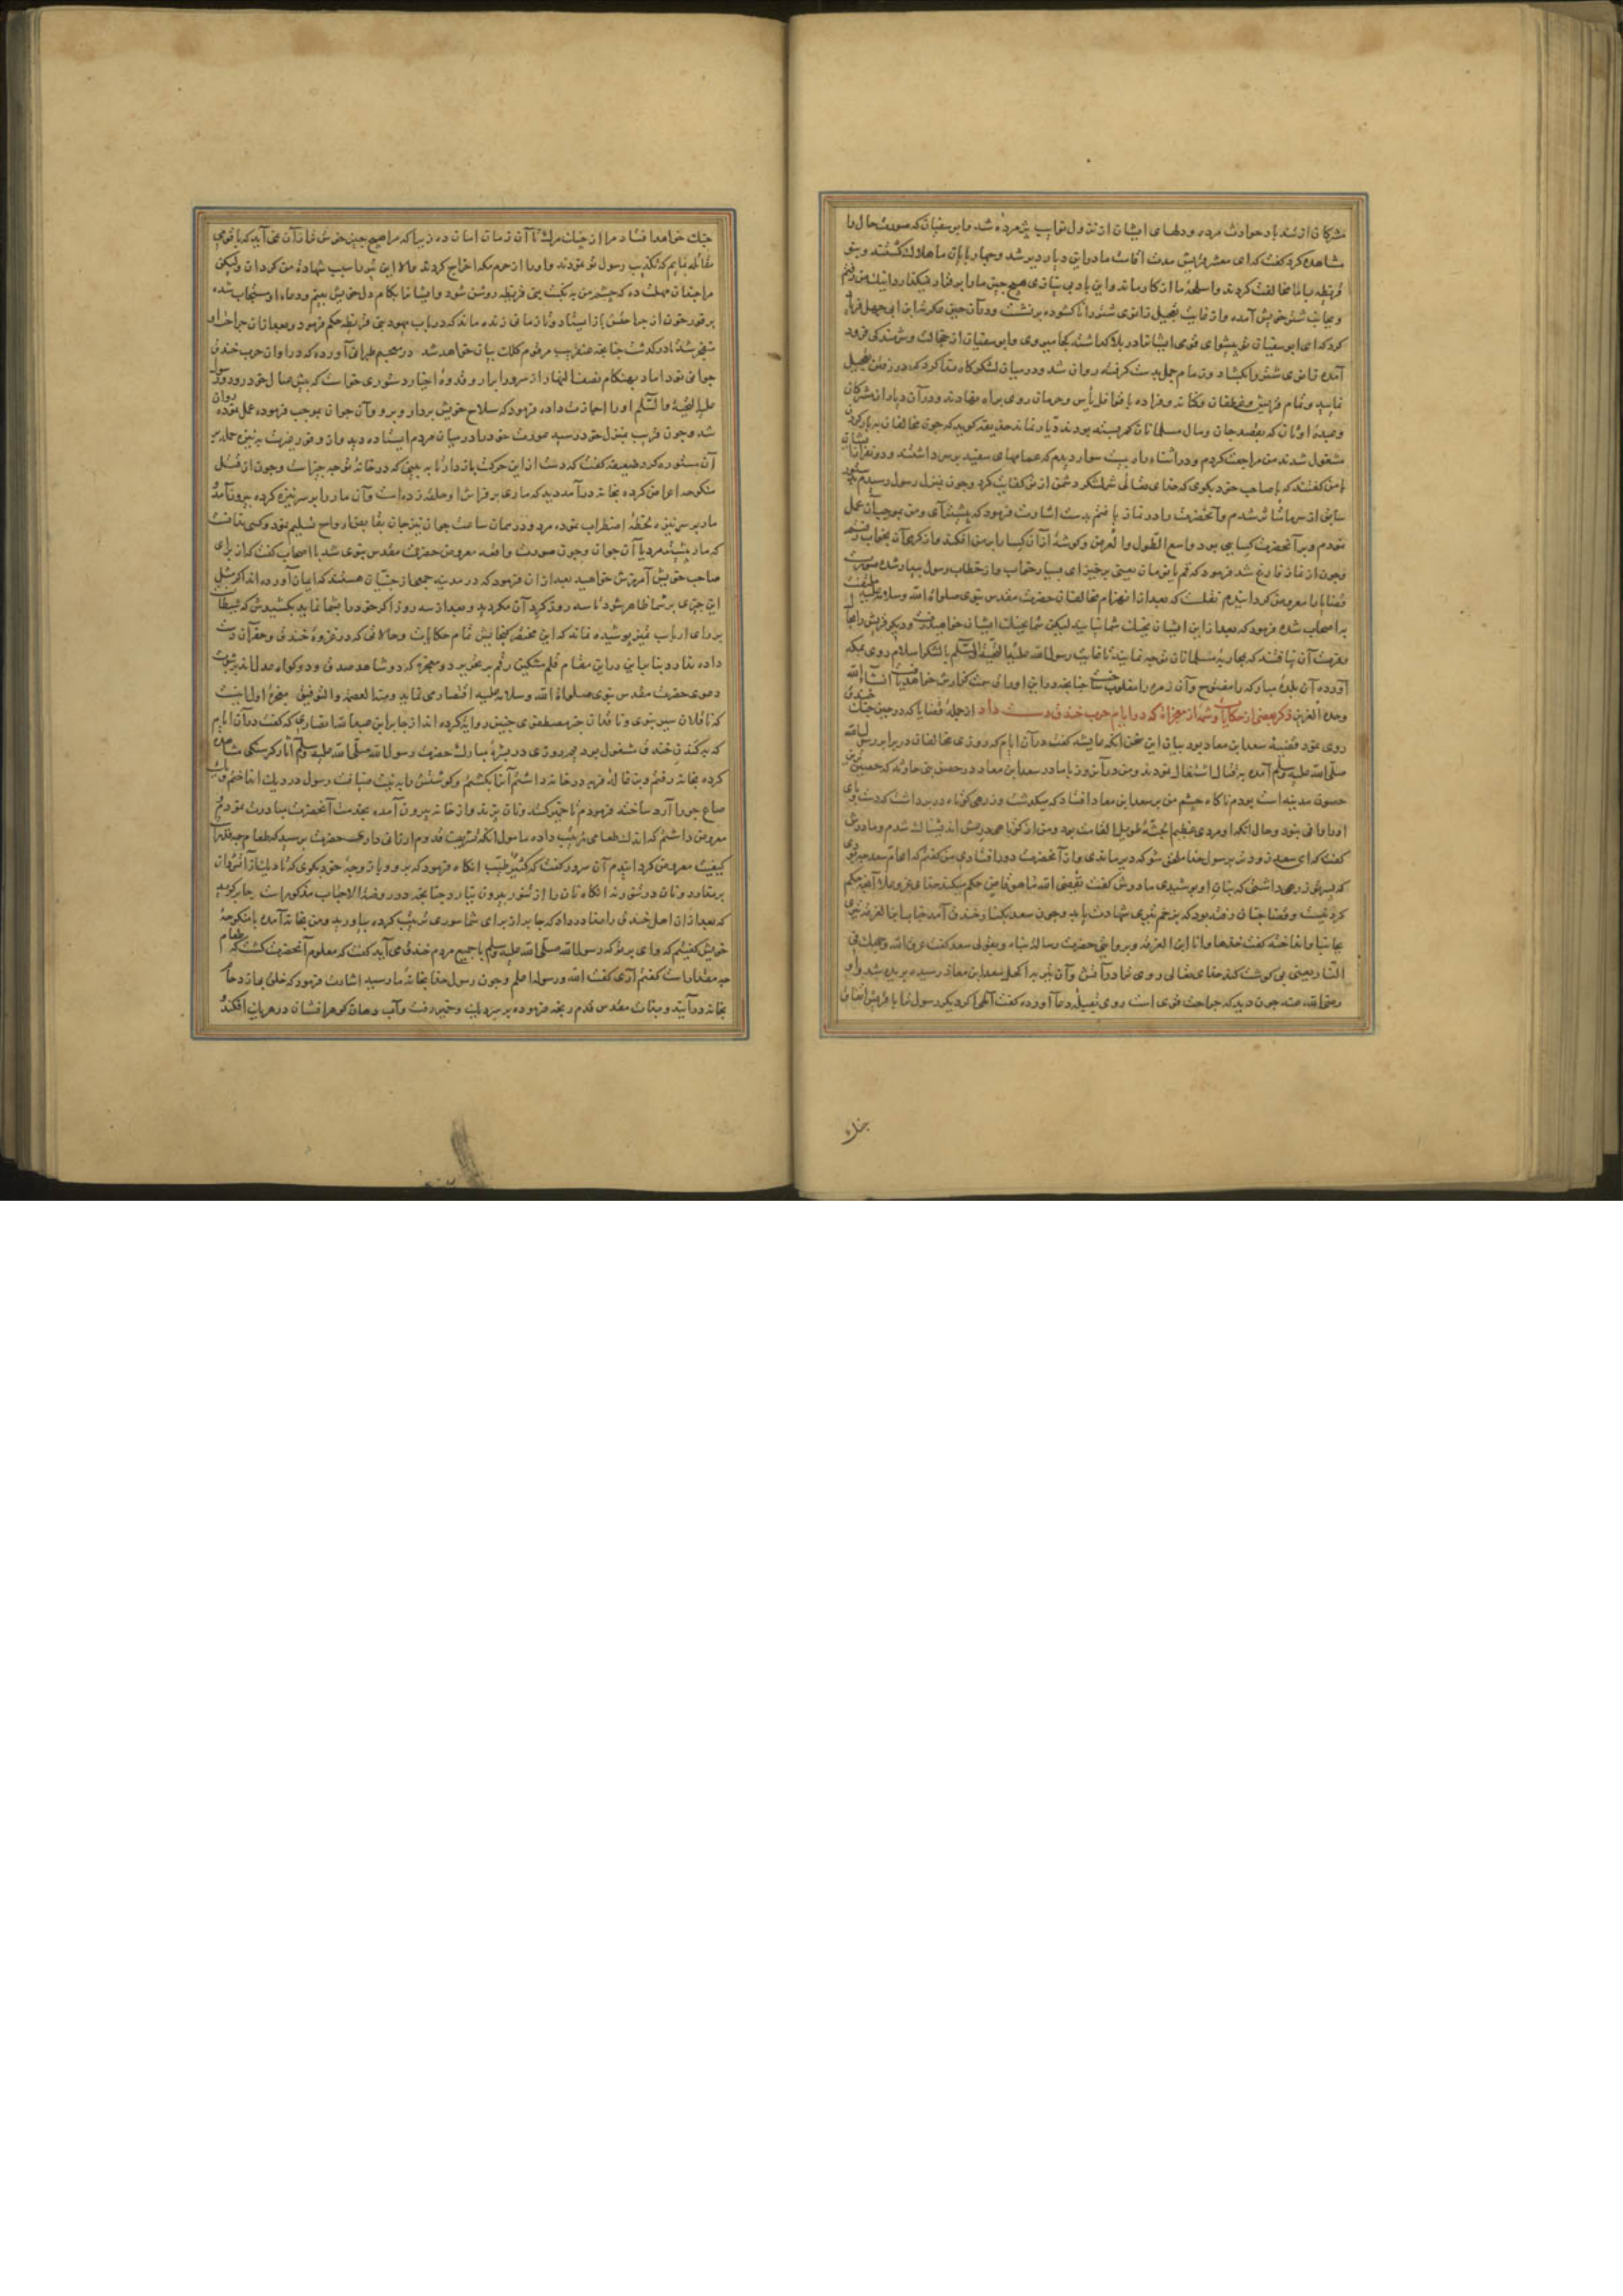 مشرکان از تند باد حوادث مرده و دلهای ایشان از نزول نوایب پژمرده شد و ابوسفیان که صورت حال را
مشاهده کرد گفت که ای معشر قریش مدت اقامت ما در این دیار دیر شد و چهار پایان ما هلاک گشتند و بنو
قریظه با ما مخالفت کردند و اسلحهٔ ما از کار ماند و این باد بی نیازی هیچ چیز ما را بر قرار نمیگذارد اینک من رفتم
و بجانب شتر خویش آمده و از غایت تعجیل زانوی شتر را ناکشوده بر نشست و در آن حین عکرمة ابن ابی جهل فریاد
کرد که ای ابوسفیان تو پیشوای قومی ایشانرا در بلا گذاشته کجا میروی و ابوسفیان از خجالت و شرمندگی فرود
آمده زانوی شتر را بکشاد و زمام جمل بدست گرفته روان شد و در میان لشکرگاه ندا کرد که در رفتن تعجیل
نمایید و تمام قریش و غطفان و کنانه و فزاره با قوافل یأس و حرمان روی براه نهادند و در آن دیار از مشرکان
مشغول شدند من مراجعت کردم و در اثناء راه بیست سوار دیدم که عمامهای سفید بر سر داشتند و دو نفر از ایشان
با من گفتند که با صاحب خود بگوی که خدای تعالی شر لشکر دشمن از تو کفایت کرد و چون بمنزل رسول رسیدم
نمودم و بر آنحضرت کسایی بود واسع الطول و العرض و گوشهٔ از آن کسا را بر من افکند
و چون از نماز فارغ شد فرمود که قم یا نومان یعنی برخیز ای بسیار خواب و از خطاب رسول بیدار شده صورت
قضایا را معروض گردانیدم نقلست که بعد از انهزام مخالفان حضرت مقدس نبوی صلوات الله و سلامه علیه
با اصحاب شده فرمود که بعد از این ایشان بجنگ شما نیایند لیکن شما بجنگ ایشان خواهید رفت و دیگر قریش را مجال
و قدرت آن نباشد که بمحاربهٔ مسلمانان توجه نمایند تا عاقبت رسول الله علیه التحیة و السلم با لشکر اسلام روی بمکه
آورده آن بلدهٔ مبارکه را مفتوح و آن زمره را مغلوب ساخت چنانچه در این اوراق سمت گذارش خواهد یافت انشاء الله
وحده العزیز ذکر بعضی از حکایات و شمهٔ از معجزات که در ایام حرب خندق دست داد از جملهٔ قضایا که در حین جنگ خندق
روی نمود قضیهٔ سعد ابن معاذ بود بیان این سخن آنکه عایشه گفت در آن ایام که روزی مخالفان در برابر رسول الله
صلی الله علیه وسلم آمده بقتال اشتغال نمودند و من در آن روز با مادر سعد ابن معاذ در حصن بنی حارثه که حصین ترین
حصون مدینه است بودم ناگاه چشم من بر سعد ابن معاذ افتاد که میگذشت و زرهی کوتاه در بر داشت که دست و پای
او را وافی نبود و حال آنکه او مردی عظیم الجثه طویل القامت بود و من از کوتاهی درعش اندیشناک شدم و مادرش
گفت که ای سعد زودتر برسول خدا ملحق شو که دیر ماندی و از آنحضرت دور افتادی من گفتم که ای ام سعد
که پسر تو زرهی داشتی که بنان او پوشیدی مادرش گفت یقضی الله ما هو قاض حکم میکند خدای عز و علا آنچه حکم
کردنیست و قضا چنان رفته بود که بزخم تیری شهادت یابد و چون سعد بکنار خندق آمد حبان ابن العرقه تیری
بجانب او انداخته گفت خذها و انا ابن العرقه و بروایتی حضرت رسالت پناه و بقولی سعد گفت عرق الله وجهک فی
النار یعنی بی گوشت کند خدای تعالی روی ترا در آتش و آن تیر بر اکحل سعد ابن معاذ رسیده بریده شد و او
رضی الله عنه چون دید که جراحت قوی است روی بقبلهٔ دعا آورده گفت الهی اگر دیگر رسول ترا با قریش اتفاق
جنگ
جنگ خواهد افتاد مرا از چنگ مرگ تا آن زمان امان ده زیرا که مرا هیچ چیز خوشتر از آن نمی آید که با قومی
مقاتله نمایم که تکذیب رسول تو نمودند و او را از حرم مکه اخراج کردند و الا این تیر را سبب شهادت من گردان ولیکن
مرا چندان مهلت ده که چشم من به نکبت بنی قریظه روشن شود و ایشانرا بکام دل خویش ببینم و دعاء او مستجاب شده
بر فور خون از جراحتش باز ایستاد و تا زمانی زنده ماند که در باب یهود بنی قریظه حکم فرمود و بعد از آن جراحت او
منفجر شد تا درگذشت چنانچه عنقریب مرقوم کلک بیان خواهد شد در صحیح طبرانی آورده که در اوان حرب خندق
جوانی نو داماد بهنگام نصف النهار از سرور ابرار و قدوهٔ اخیار دستوری خواست که پیش عیال خود رود رسول
علیه التحیة و السلم او را اجازت داده فرمود که سلاح خویش بردار و برو و آن جوان بموجب فرموده عمل نموده روان
شد و چون قریب بمنزل خود رسید عورت خود را در میان مردم ایستاده دید و از وفور غیرت به نیزه حمله بر
آن مستوره کرد ضعیفه گفت که دست از این حرکت بازدار تا به بینی که در خانهٔ تو چه چیز است و چون از قتل
منکوحه اعراض کرده بخانه در آمد دید که ماری بر فراش او حلقه زده است و آن مار را بر سر نیزه کرده بیرون آمد
مار بر سر نیزه لحظهٔ اضطراب نموده مرد و در همان ساعت جوان نیز جان بقابض ارواح تسلیم نمود و کس ندانست
که مار پیشتر مرد یا آن جوان و چون صورت واقعه معروض حضرت مقدس نبوی شد با اصحاب گفت که از برای
صاحب خویش آمرزش خواهید بعد از آن فرمود که در مدینه جمعی از جنیان هستند که ایمان آورده اند اگر مثل
این چیزی بر شما ظاهر شود تا سه روز گرد آن مگردید و بعد از سه روز اگر خود را بشما نماید بکشیدش که شیطان است
بر رای ارباب تمیز پوشیده نماند که این مختصر گنجایش تمام حکایات و حالاتی که در غزوهٔ خندق وقوع آن دست
داده ندارد بنا بر این در این مقام قلم مشکین رقم بر تحریر دو معجزه که دو شاهد صدق و دو گواه عدل اند بر ثبوت
دعوی حضرت مقدس نبوی صلوات الله و سلامه علیه اقتصار می نماید و منه العصمة و التوفیق معجزهٔ اول اینست
که ناقلان سیر نبوی و ناقدان خبر مصطفوی چنین روایت کرده اند از جابر ابن عبد الله انصاری که گفت در آن ایام
که بکندن خندق مشغول بود چه روزی در بشرهٔ مبارک حضرت رسول الله صلی الله علیه وسلم آثار گرسنگی مشاهده
کرده بخانه رفتم و بزغالهٔ فربه در خانه داشتم آنرا بکشتم و گوشتش را به نیت ضیافت رسول در دیگ انداختم و یک
صاع جو را آرد ساخته فرمودم تا خمیر کنند و نان پزند و از خانه بیرون آمده بخدمت آنحضرت مبادرت نمودم
معروض داشتم که اندک طعامی ترتیب داده مامول آنکه تشریف قدوم ارزانی داری حضرت پرسید که طعام چه مقدار است
کیفیت معروض گردانیدم آن سرور گفت که کثیر طیب آنگاه فرمود که برو و با زوجهٔ خود بگوی که تا دیگ از آتشدان
بر ندارد و نان در تنور نزند آنگاه نان را از تنور بیرون نیارد چنانچه در روضة الاحباب مذکور است جابر گوید
که بعد از آن اهل خندق را ندا در داد که جابر از برای شما سوری ترتیب کرده بیاورید و من بخانه آمده با منکوحهٔ
خویش گفتم که وای بر تو که رسول الله صلی الله علیه وسلم با جمیع مردم خندق می آید گفت که معلوم آنحضرت گشته که طعام
چه مقدار است گفتم آری گفت الله و رسوله اعلم و چون رسول خدا بخانهٔ ما رسید اشارت فرمود که خلق بی ازدحام
بخانه در آیند و بذات مقدس قدم رنجه فرموده بر سر دیگ و خمیر رفت و آب دهان گوهر افشان در هر یک افکند